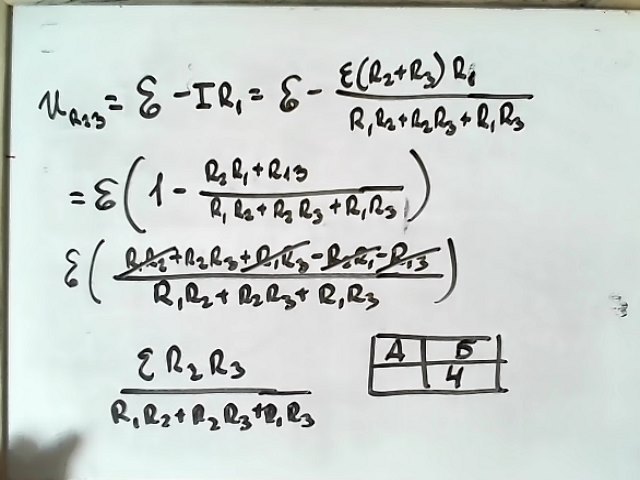 U_{R23} = ℰ - IR₁ = ℰ - ℰ(R₂+R₃)R₁ / (R₁R₂+R₂R₃+R₁R₃)
= ℰ(1 - (R₂R₁+R₁₃) / (R₁R₂+R₂R₃+R₁R₃))
ℰ((R₁R₂+R₂R₃+R₁R₃-R₂R₁-R₁₃) / (R₁R₂+R₂R₃+R₁R₃))
ℰR₂R₃ / (R₁R₂+R₂R₃+R₁R₃)
А Б
4